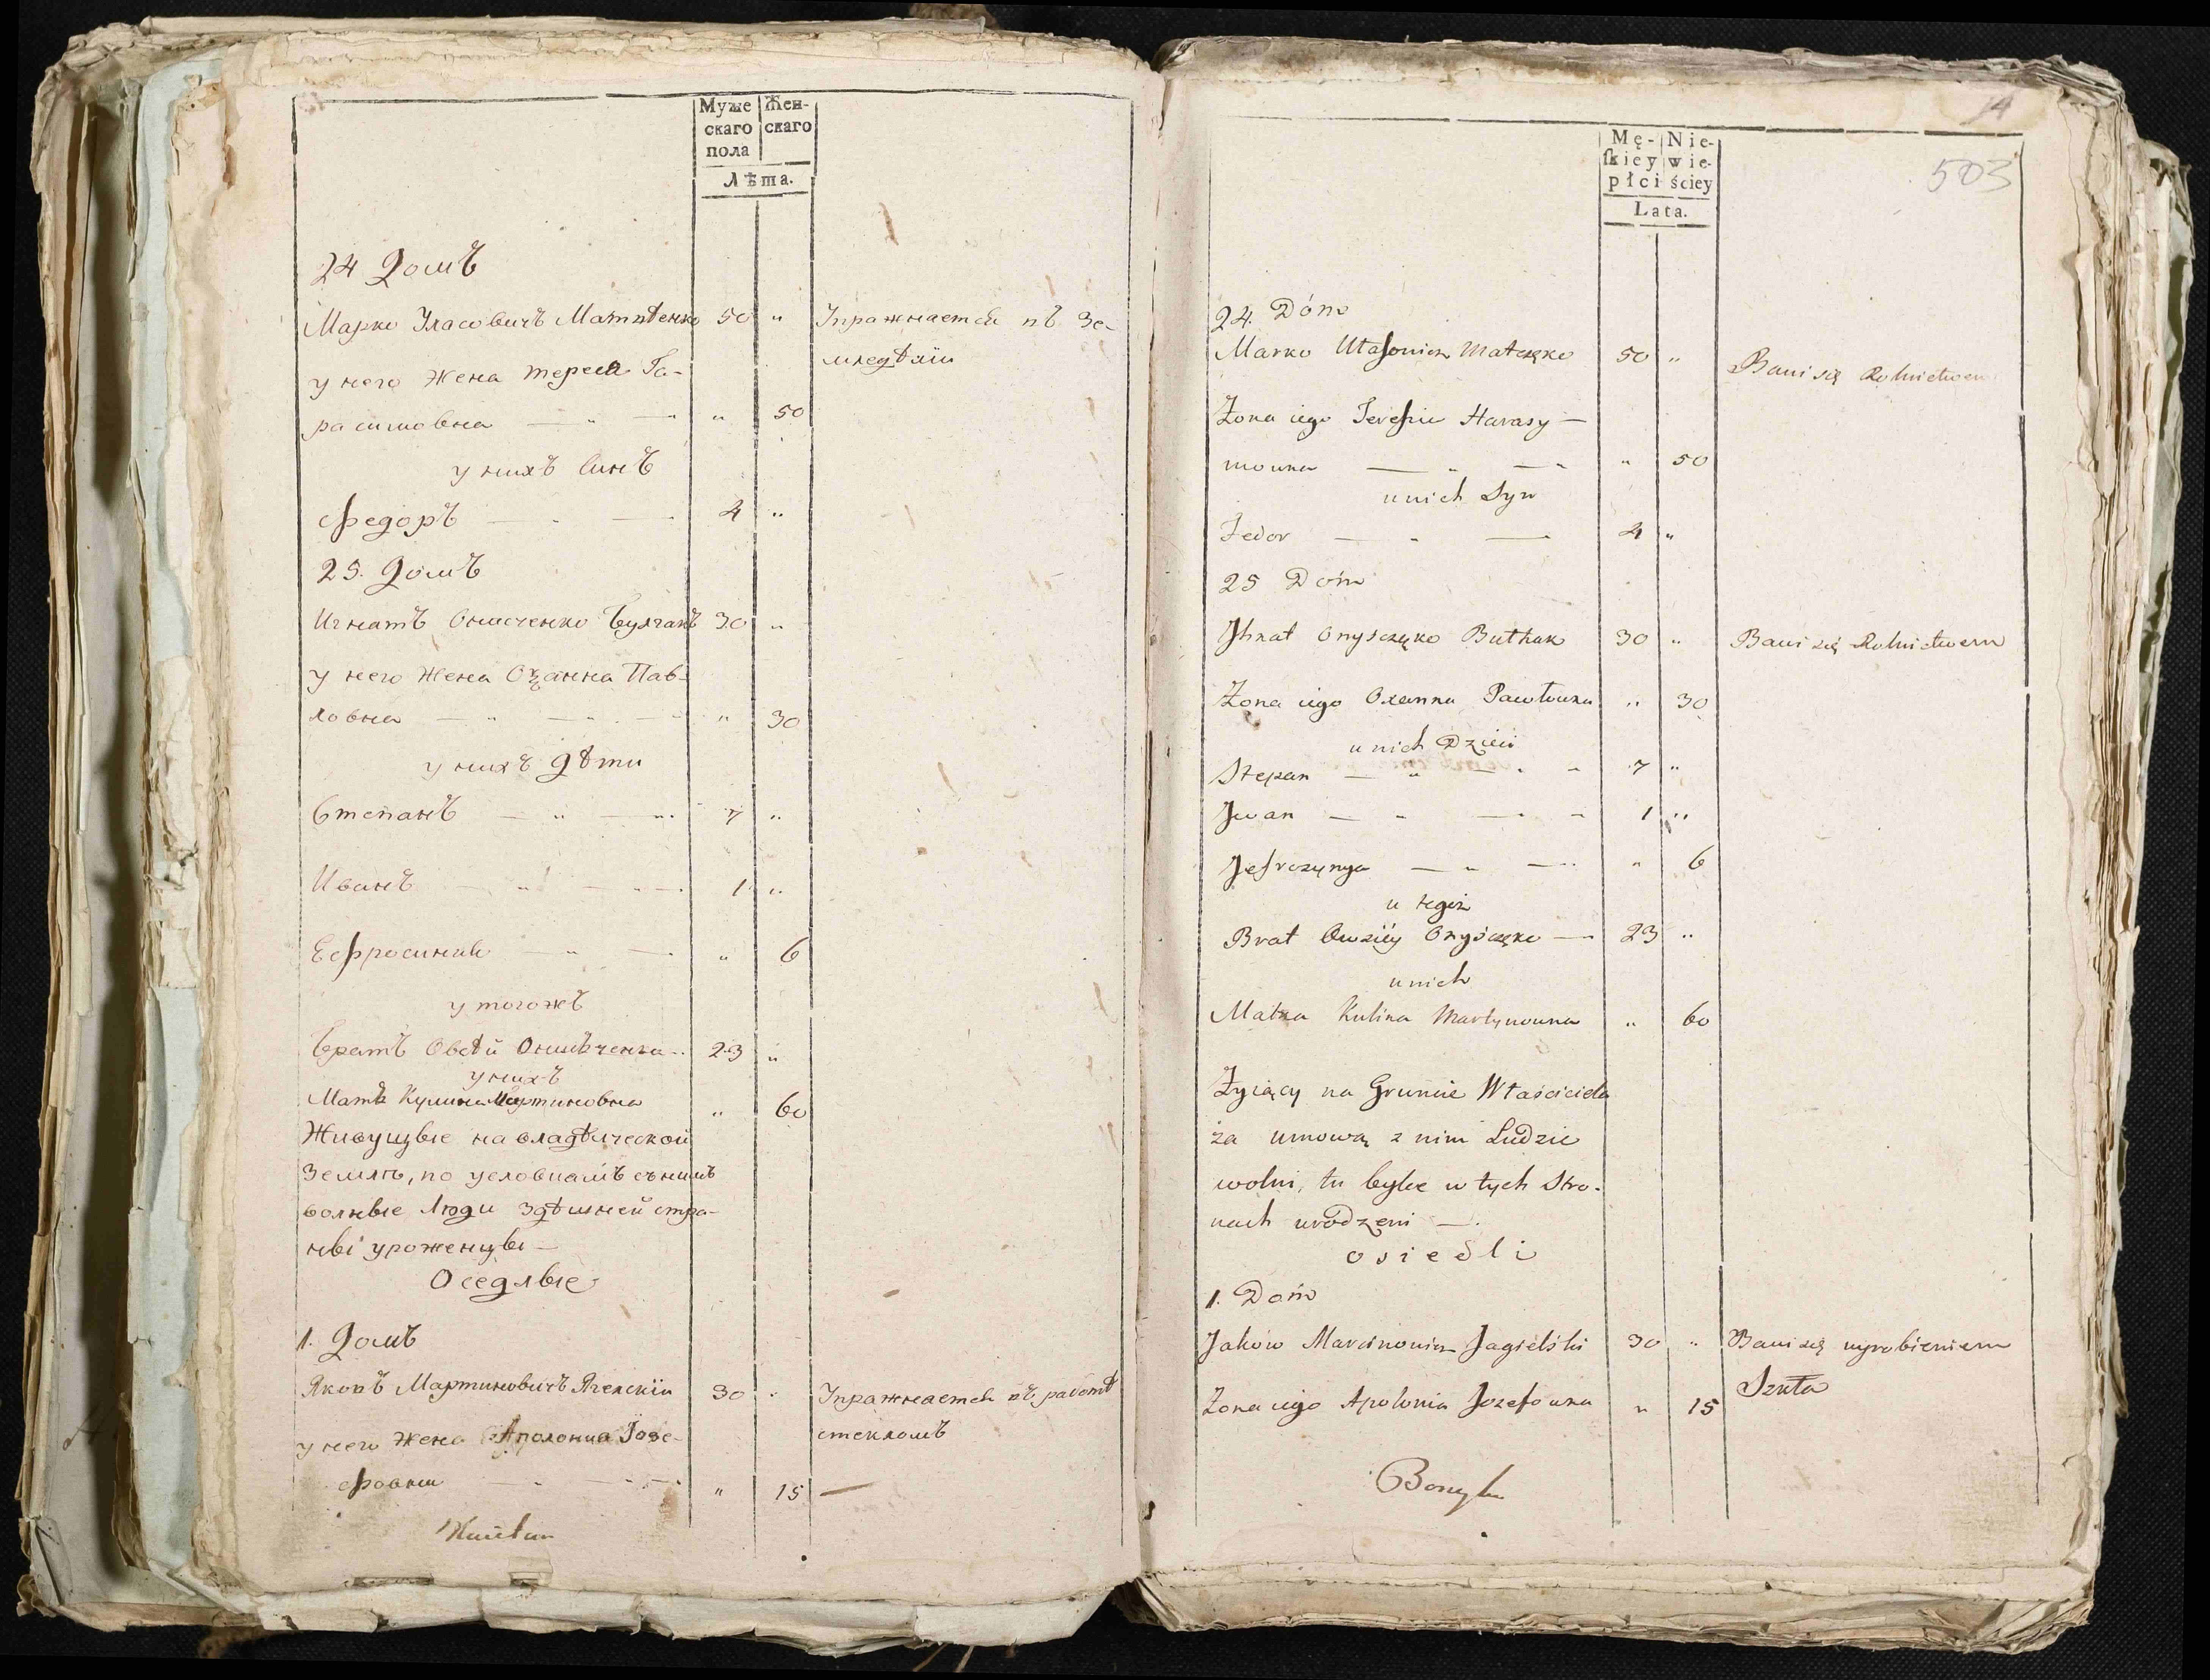 Муже Жен-
скаго скаго
пола
Лѣта.
24 Домъ
Марко Уласовичъ Матѣенко 50 " Упражнается въ Зе-
мледѣліи
у него жена тереса Га-
расимовна — " — " " 50
у нихъ Синъ
Федоръ — " — 4 "
25. Домъ
Игнатъ Онисченко Булгакъ 30 "
у него жена Оѯанна Пав-
ловна — " — " — " 30
у нихъ дѣти
Степанъ — " — " 7 "
Иванъ — " — " 1 "
Ефросиния — " — " 6
у тогожъ
братъ Овсѣй Онишченко 23 "
у нихъ
Мать Кулина Мартиновна " 60
Живущые на владѣлческой
Землѣ, по условиамъ съ нимъ
волные Люди здѣшней стра-
ны уроженцы —
Оседлые
1. Домъ
Яковъ Мартиновичъ Ягелскій 30 " Упражнается въ работѣ
стекломъ
у него жена Аполониа Іозе-
фовни — " — " — " 15 —
14
503
Mę- Nie-
ſkiey wie-
płci ściey
Lata.
24. Dóm
Marko Ułasowicz Mateęko 50 " Bawi się Rolnictwem
Żona iego Teressie Harasy —
mowna — " — " " 50
u nich Syn
Fedor — " — 4 "
25 Dóm
Jhnat Onysczęko Buthak 30 " Bawi się Rolnictwem
Żona iego Oxanna Pawłowna " 30
u nich Dzieci
Stepan — " — " " 7 "
Jwan — " — " 1 "
Jefrozynya — " — " " 6
u tegoż
Brat Owsiiy Onysczęko — 23 "
u nich
Matka Kulina Martynowna " 60
Żyiący na Gruncie Właściciela
za umową z nim Ludzie
wolni, tu bylże w tych Stro-
nach urodzeni —.
osiedli
1. Dom
Jakow Marcinowicz Jagielski 30 " Bawi się wyrobieniem
Szkła
Żona iego Apolonia Jozefowna " 15